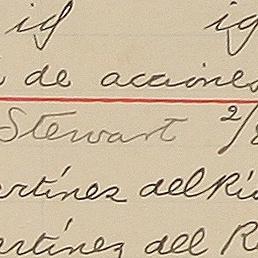 id ig
de acciones
Stewart 2/
rtínez del Rí
artínez del R